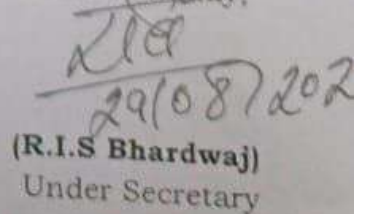 29/08/202
(R.I.S Bhardwaj)
Under Secretary